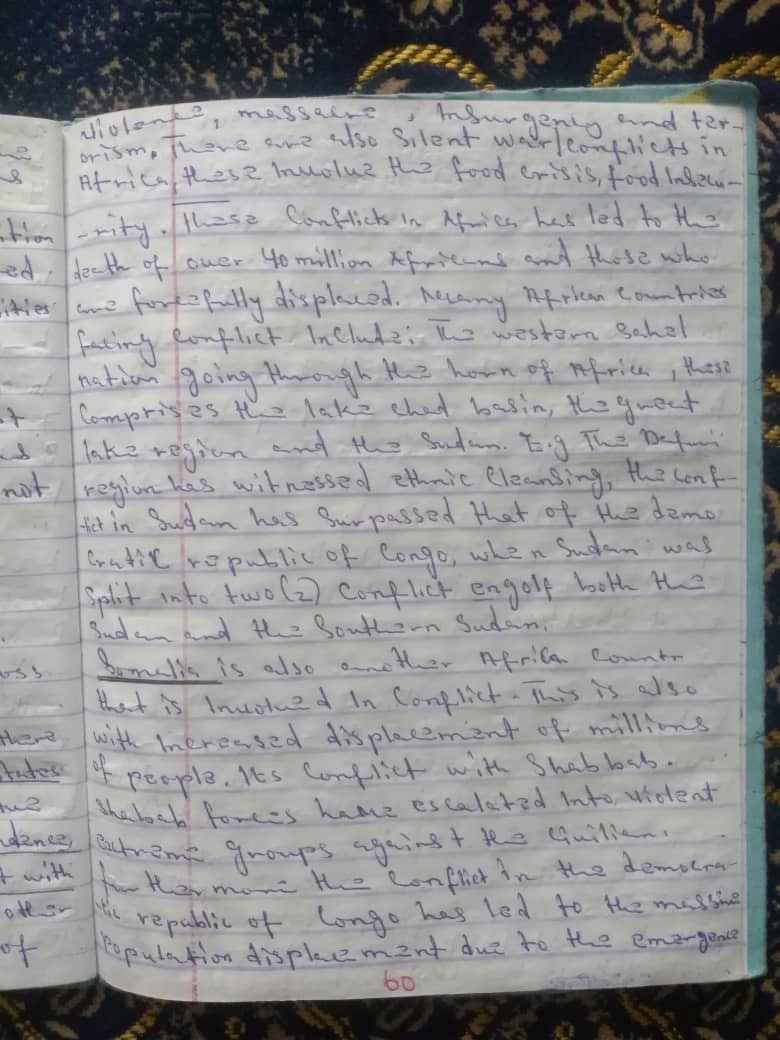 violence, massacre, Insurgency and ter-
orism. There are also Silent war/conflicts in
Africa, these Involve the food crisis, food Insecu-
-rity. These Conflicts In Africa has led to the
death of over 40 million Africans and those who
are forcefully displaced. Many African Countries
facing conflict Include: The western Sahel
nation going through the horn of Africa, these
Comprises the lake chad basin, the great
lake region and the Sudan. E.g The
region has witnessed ethnic Cleansing, the conf-
lict in Sudan has Surpassed that of the demo
cratic republic of Congo, when Sudan was
Split into two (2) Conflict engolf both the
Sudan and the Southern Sudan.
Somalia is also another Africa Countr
that is Involved In Conflict. This is also
with Increased displacement of millions
of people. Its Conflict with Shabbab.
Shabab forces have escalated Into violent
extreme groups against the Civilian.
furthermore the Conflict in the democra-
tic republic of Congo has led to the massive
Population displacement due to the emergence
60
ition
ed
ities
t
as
not
oss
there
tates
tue
dence
t with
other
of